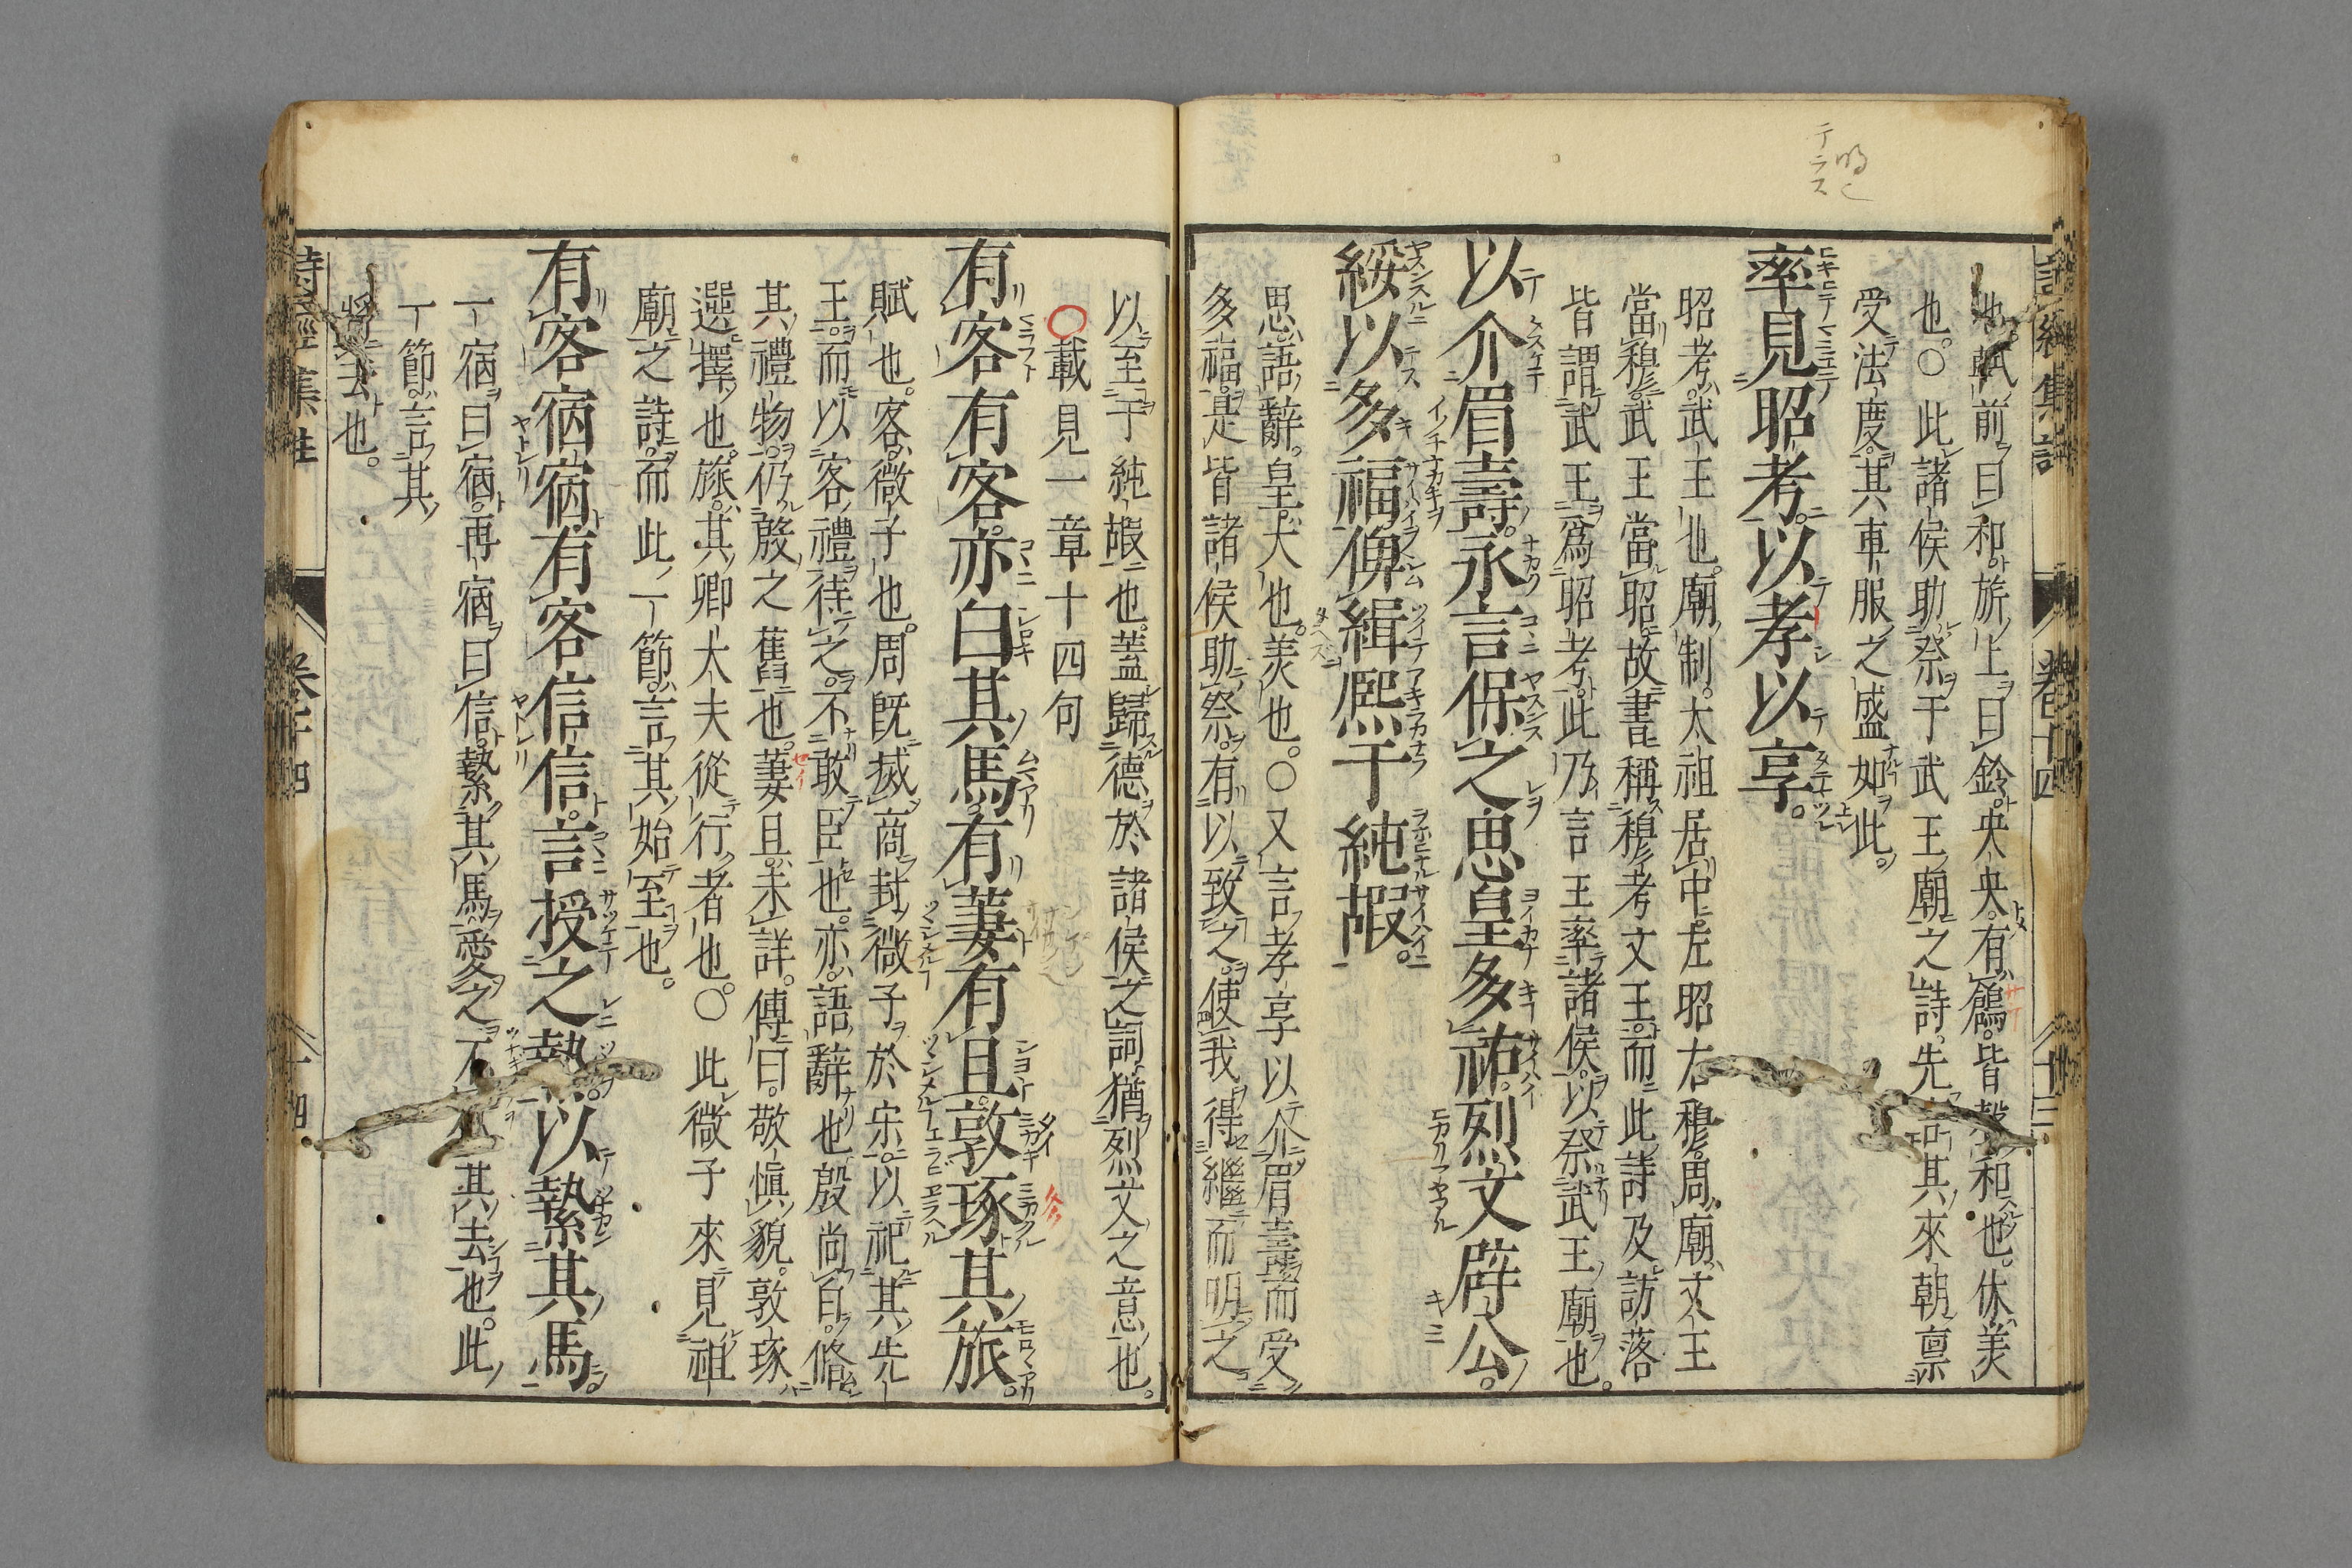 也。軾前曰和。旂上曰鈴。央央。有鶬。皆聲和也。休。美
也。○此諸侯助祭于武王廟之詩。先言其來朝。禀
受法度。其車服之盛如此。
率見昭考。以孝以享。
昭考。武王也。廟制。太祖居中。左昭右穆。周廟。文王
當穆。武王當昭。故書稱穆考文王。而此詩及訪落
皆謂武王爲昭考。此乃言王率諸侯。以祭武王廟也。
以介眉壽。永言保之。思皇多祜。烈文辟公。
綏以多福。俾緝熙于純嘏。
思。語辭。皇。大也。美也。○又言孝享以介眉壽。而受
多福。是皆諸侯助祭。有以致之。使我得繼而明之
以至于純嘏也。蓋歸德於諸侯之詞。猶烈文之意也。
○載見一章十四句
有客有客。亦白其馬。有萋有且。敦琢其旅。
賦也。客。微子也。周既滅商。封微子於宋。以祀其先
王。而以客禮待之。不敢臣也。亦。語辭也。殷尚白。脩
其禮物。仍殷之舊也。萋且。未詳。傳曰。敬慎貌。敦琢
選擇也。旅。其卿大夫從行者也。○此微子來見祖
廟之詩。而此一節。言其始至也。
有客宿宿。有客信信。言授之縶。以縶其馬
一宿曰宿。再宿曰信。縶其馬。愛之。不欲其去也。此
一節。言其
將去也。
詩經集註 卷十四 十三
詩經集註 卷十四 十四